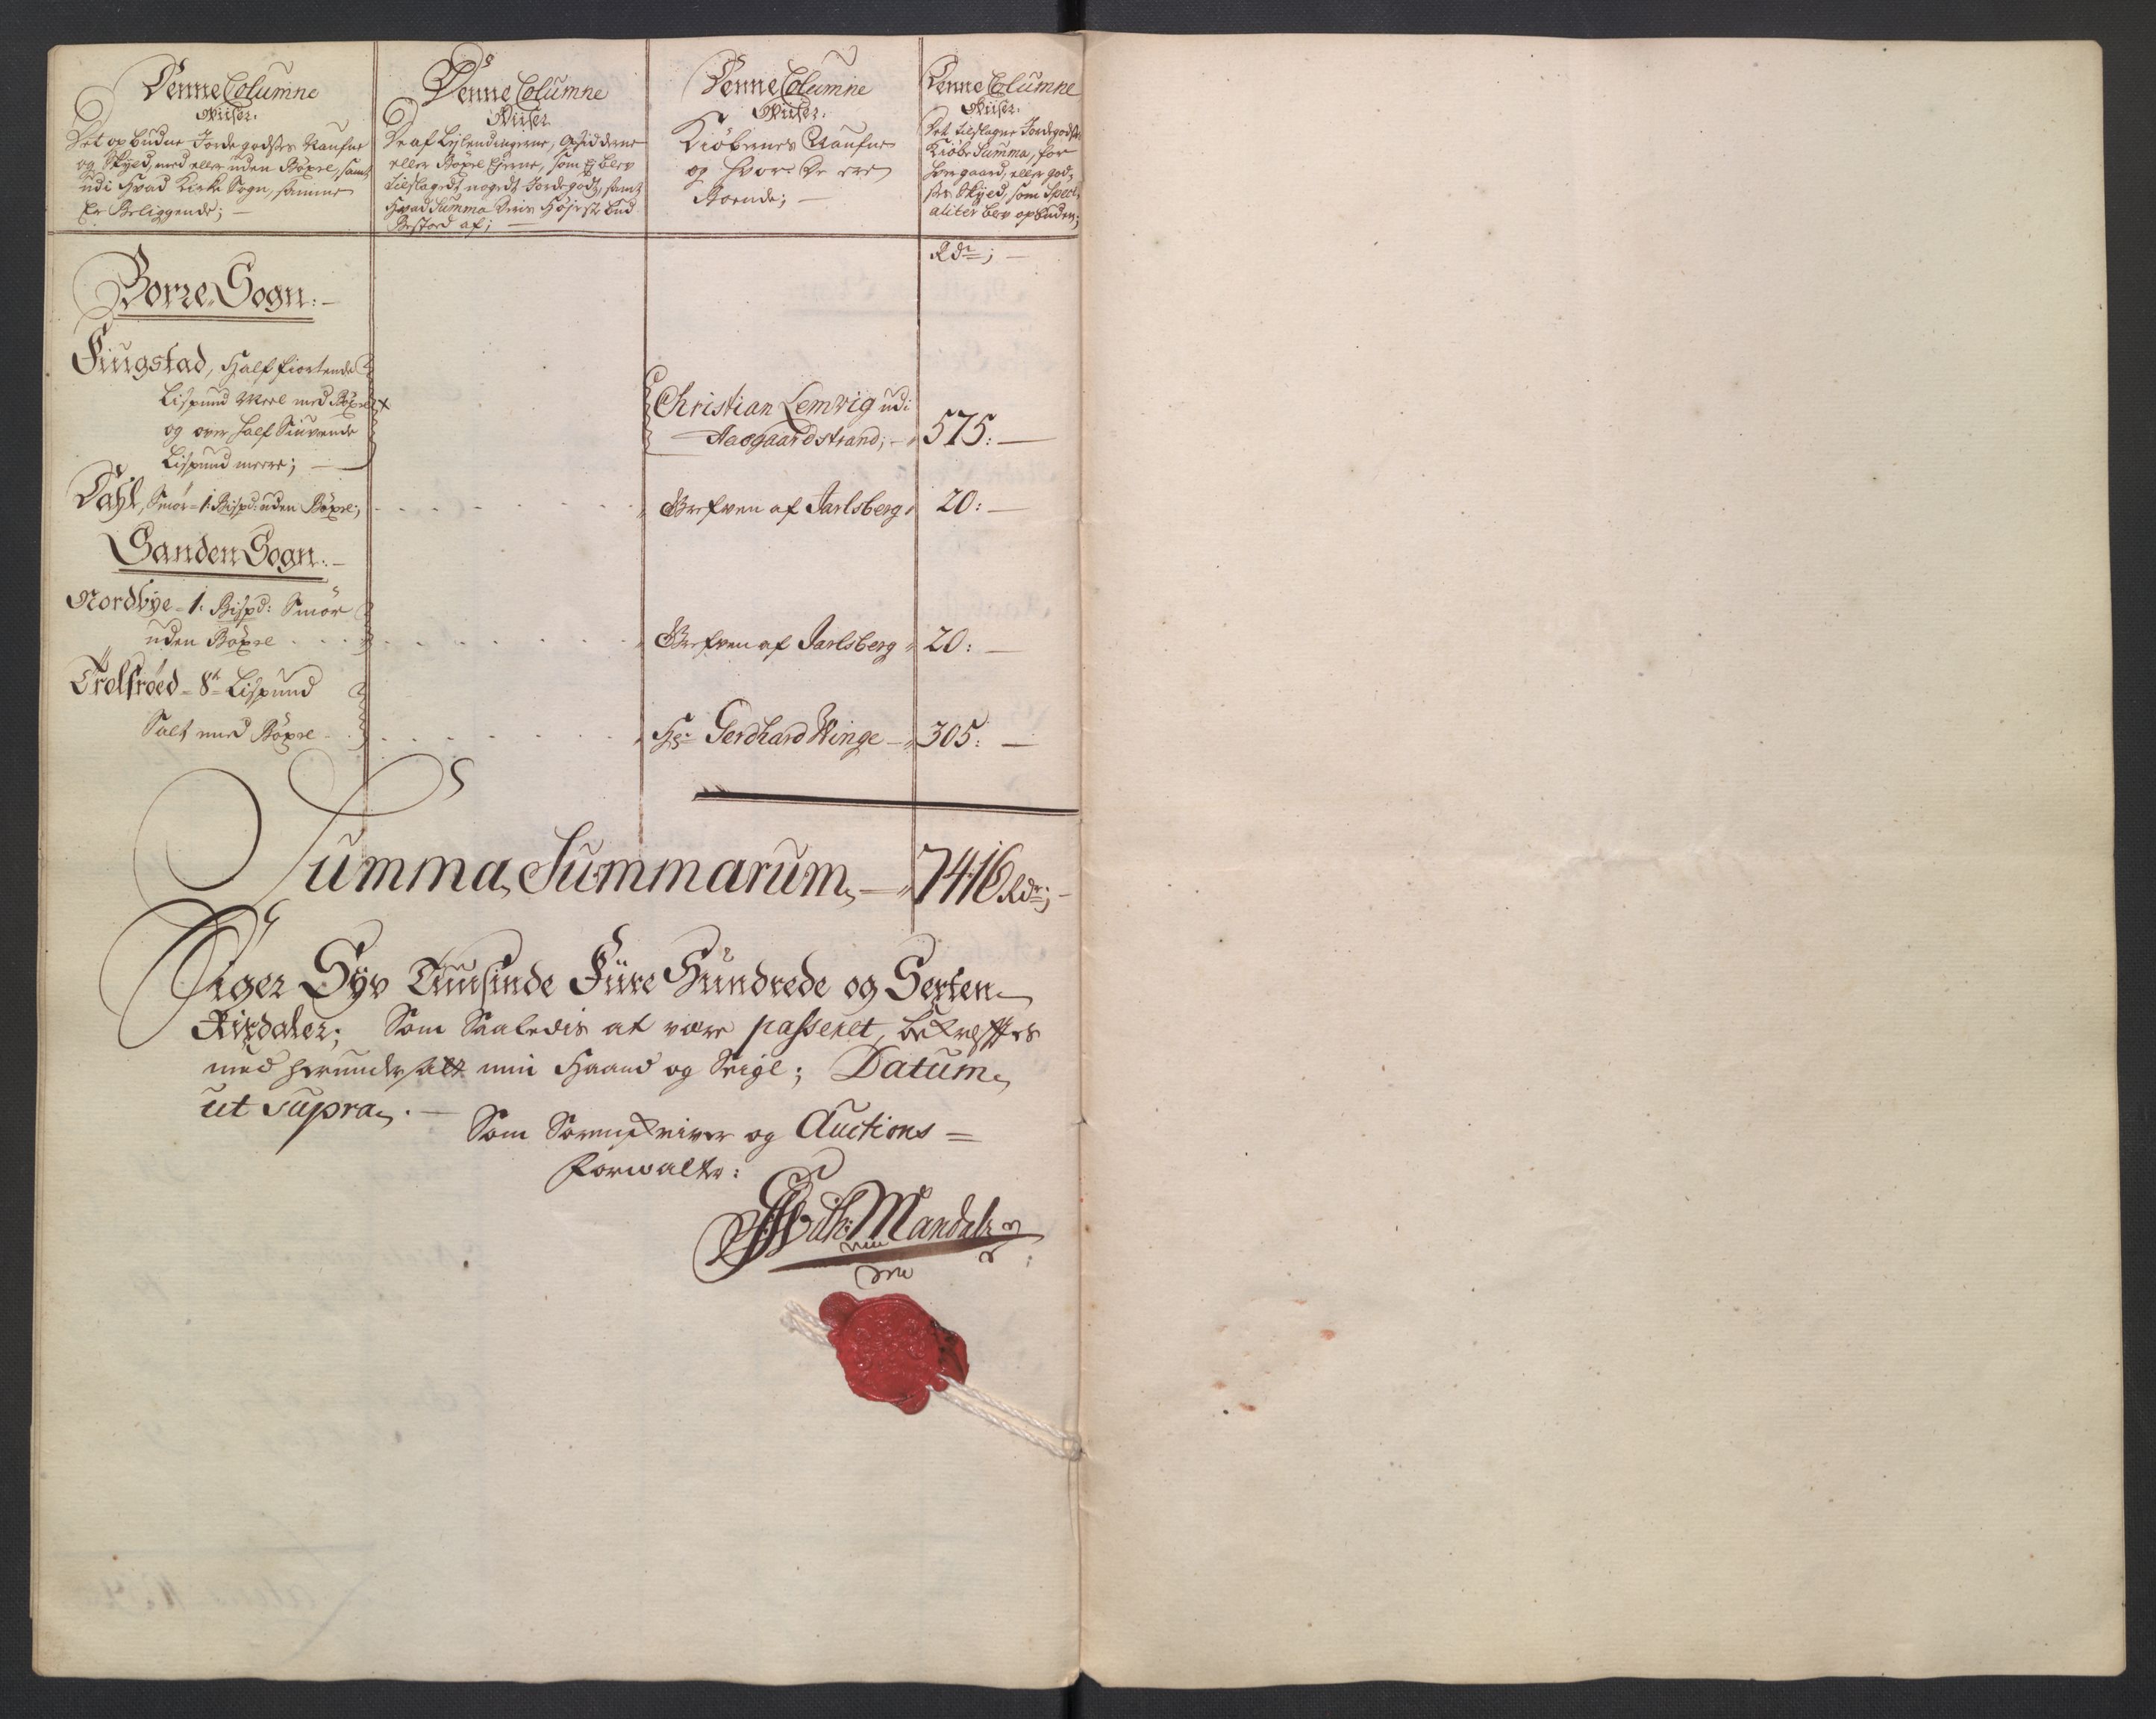 Denne Columne
Viiser.
Det opbudne Jordegodses Naufne
og Skyld, med eller uden Böxel, samt
udi Hvad Kirke Sogn, samme
Er Beliggende; —
Denne Columne
Viiser
De af Leylendingerne, Opsidderne
eller Böxel Ejerne, som Ej blev
tilslagedt nogedt Jordegodz, samt
Hvad Summa Deris Höjeste bud
Bestoed af; —
Denne Columne
Viiser.
Kiöbernes Naufne
og Hvor De ere
Boende; —
Denne Columne
Viiser.
Det tilslagne Jordegodses
Kiöbe Summa, for
Hver gaard, eller god-
ses Skyld, som Speci-
aliter blev opbuden;
Rdr; —
Borre Sogn: —
Fiugstad, Half fiortende
Lispund Meel med Böxel
og over Half Siuvende
Lispund meere; —
Christian Lemvig udi
Aasgaardstrand; — 575: —
Dahl, Smör = 1. Bispd: uden Böxel; Grefven af Jarlsberg 20: —
Sanden Sogn: —
Nordbye = 1. Bispd: Smör
uden Böxel Grefven af Jarlsberg 20: —
Trolsröed = 8te Lispund
Salt med Böxel Hr: Gerdhard Winge — 305: —
Summa Summarum — 7416 Rdr; —
Siger Syv Tuusinde Fiire Hundrede og Sexten
Rixdaler; Som Saaledis at være passeret, bekreftes
med herundersatt min Haand og Seigl; Datum
ut supra. —
Som Sorenskriver og Auctions =
forwalter:
Mandal